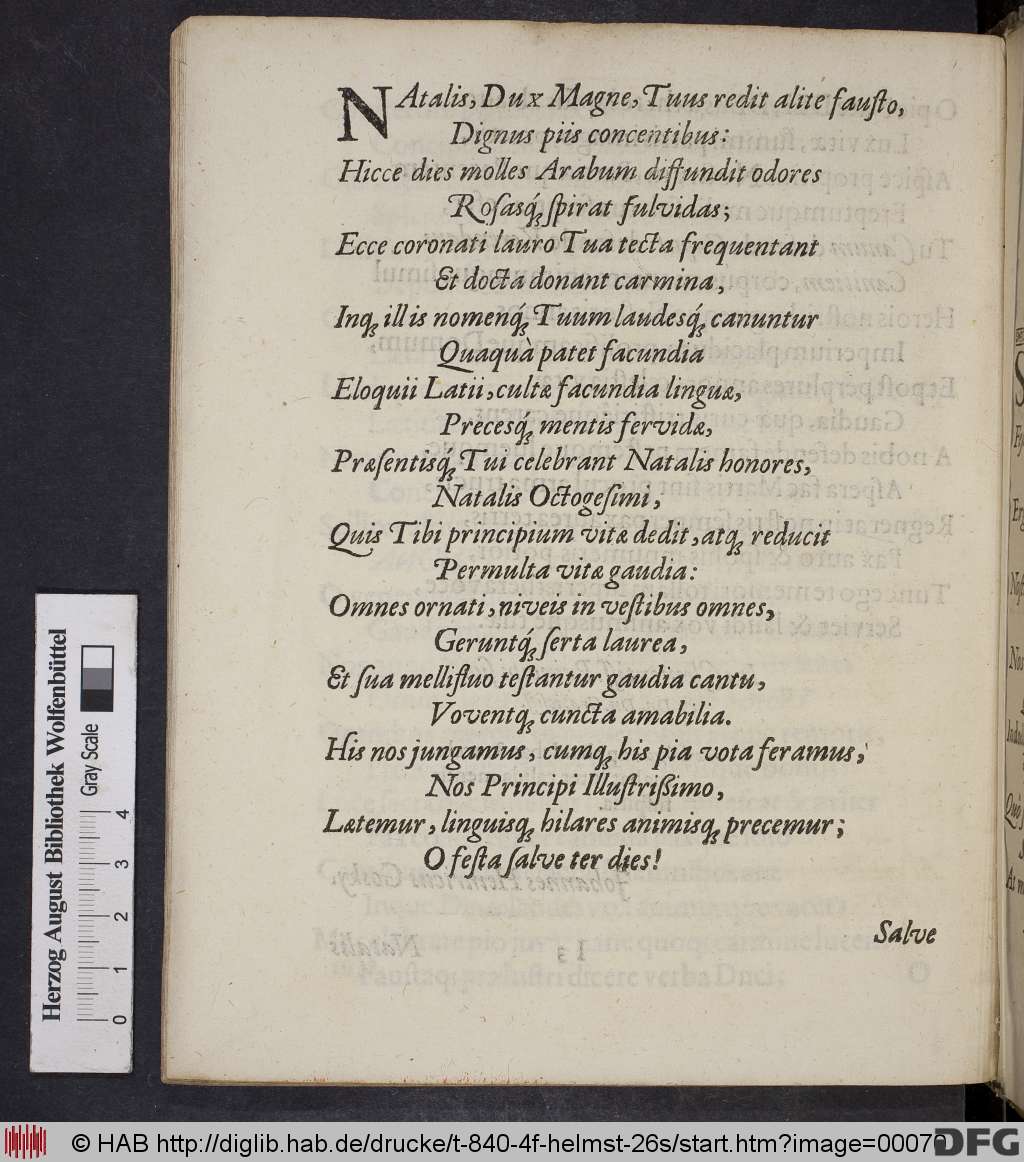 NAtalis, Dux Magne, Tuus redit alite fauſto,
Dignus piis concentibus:
Hicce dies molles Arabum diffundit odores
Roſasq́; ſpirat fulvidas;
Ecce coronati lauro Tua tecta frequentant
Et docta donant carmina,
Inq; illis nomenq́; Tuum laudesq́; canuntur
Quaquà patet facundia
Eloquii Latii, cultæ facundia linguæ,
Precesq́; mentis fervidæ,
Præſentisq́; Tui celebrant Natalis honores,
Natalis Octogeſimi,
Quis Tibi principium vitæ dedit, atq; reducit
Permulta vitæ gaudia:
Omnes ornati, niveis in veſtibus omnes,
Geruntq́; ſerta laurea,
Et ſua mellifluo teſtantur gaudia cantu,
Voventq; cuncta amabilia.
His nos jungamus, cumq; his pia vota feramus,
Nos Principi Illuſtriſsimo,
Lætemur, linguisq; hilares animisq; precemur;
O feſta ſalve ter dies!
Salve
Herzog August Bibliothek Wolfenbüttel
Gray Scale
0 1 2 3 4
© HAB http://diglib.hab.de/drucke/t-840-4f-helmst-26s/start.htm?image=00070
DFG